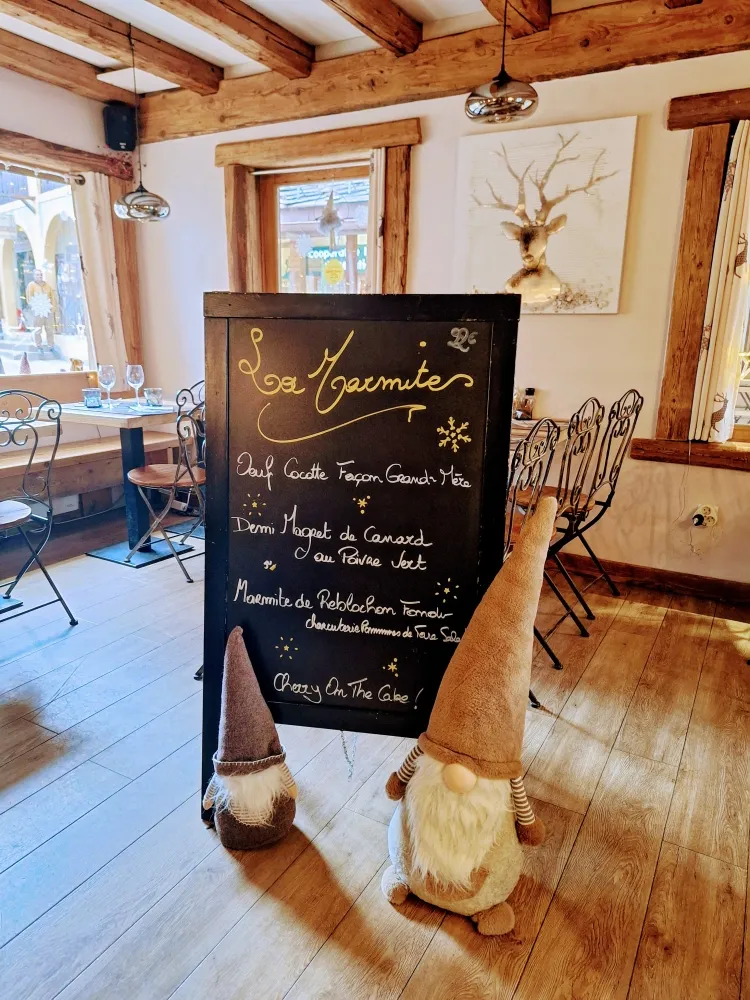 La Marmite
Oeuf Cocotte Façon Grand-Mère
Demi Magret de Canard
au Poivre Vert
Marmite de Reblochon Fermier
charcuterie Pommes de Terre Salade
Cherry On The Cake !